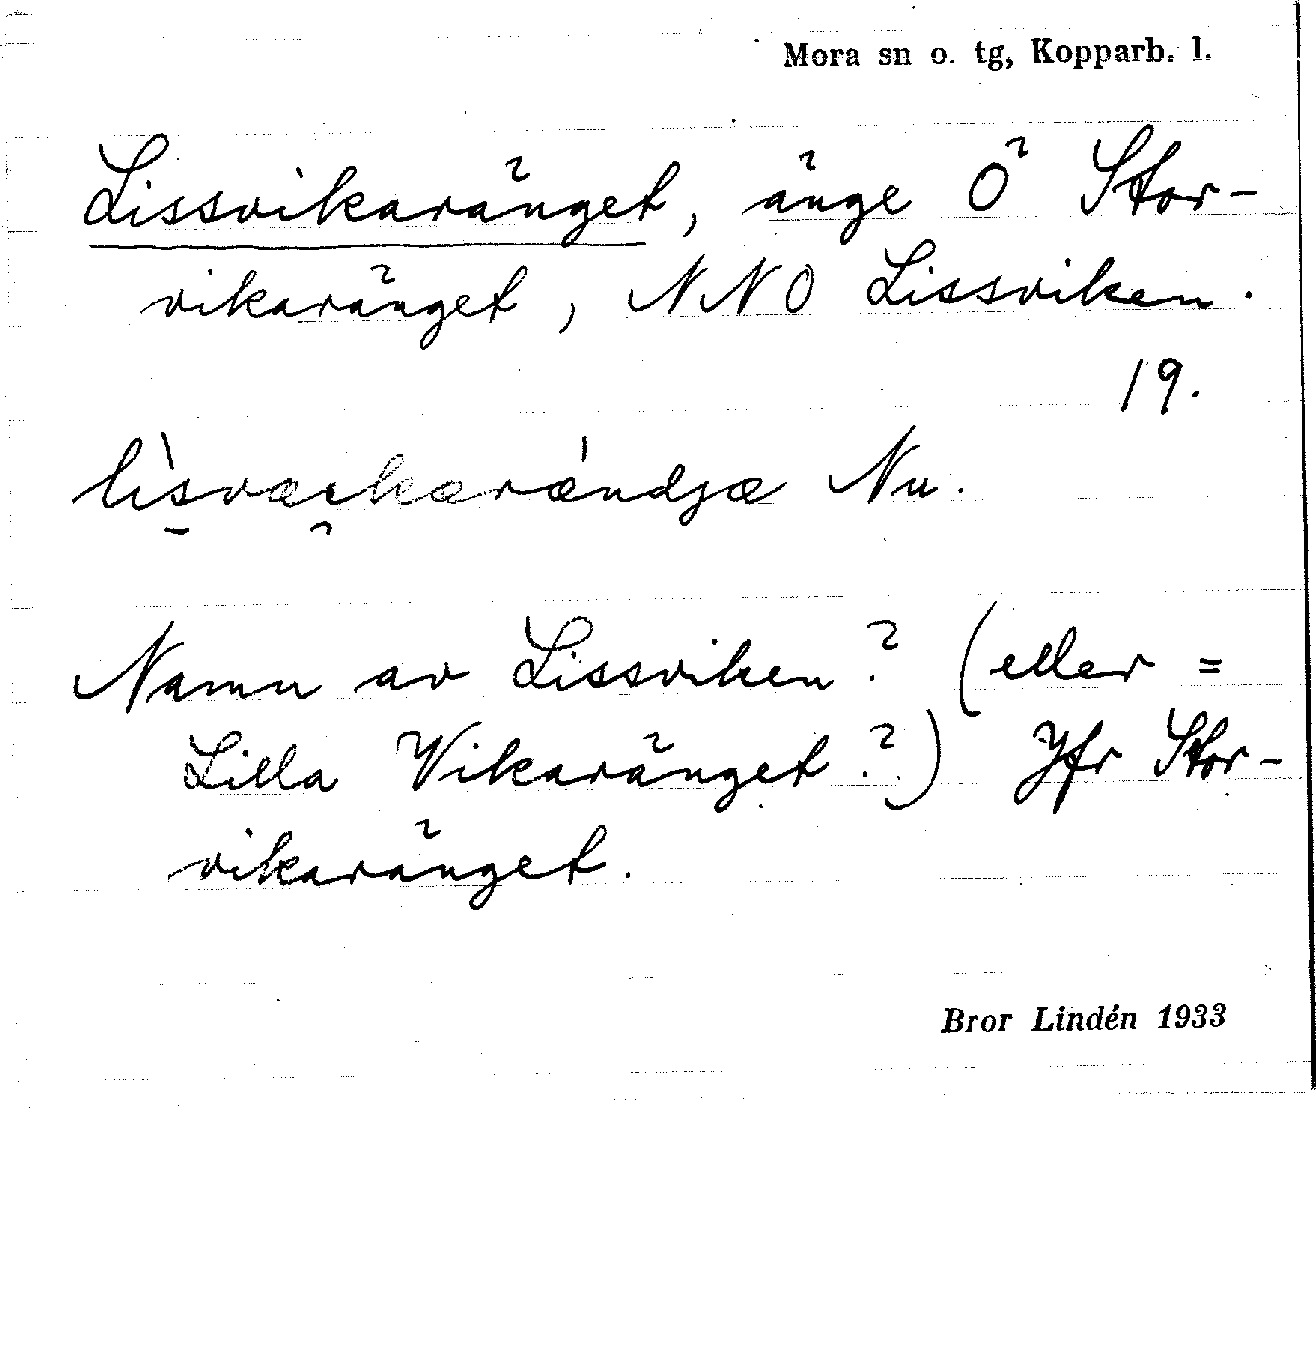 Mora sn o. tg, Kopparb. l.
Lissvikaränget, änge Ö Stor-
vikaränget, NNO Lissviken.
19.
lìsvæikærǽndjæ Nu.
Namn av Lissviken? (eller =
Lilla Vikaränget?) Jfr Stor-
vikaränget.
Bror Lindén 1933